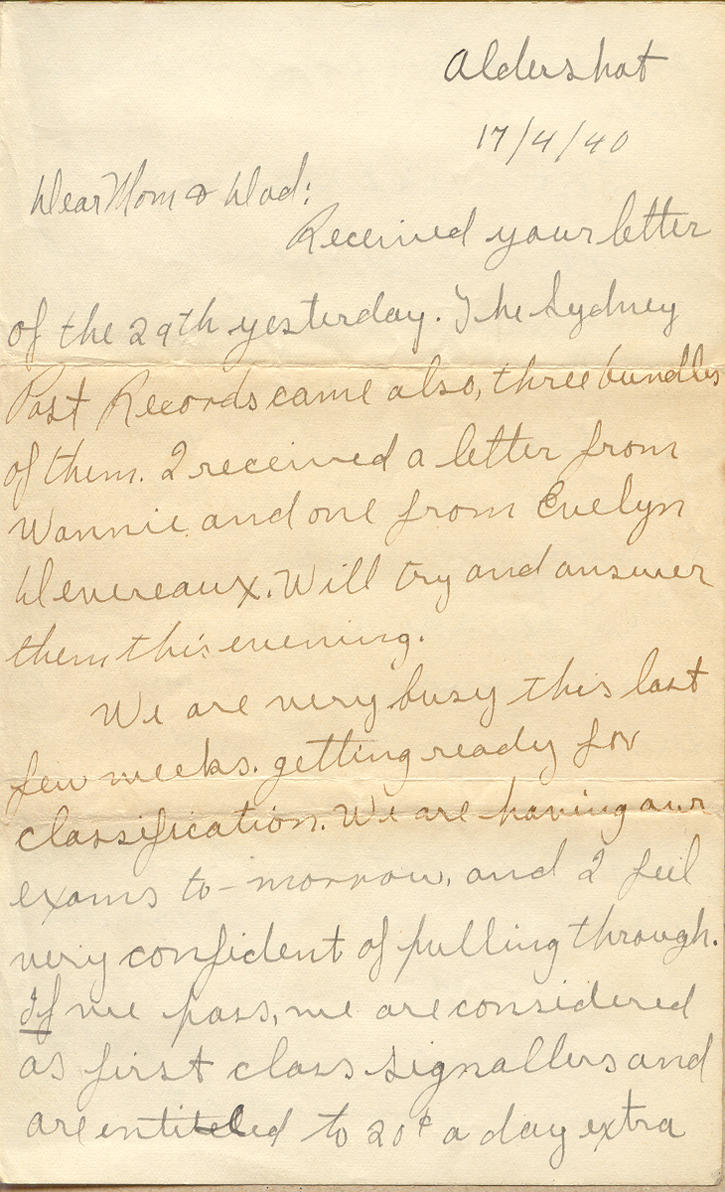 Aldershot
17/4/40
Dear Mom & Dad:
Received your letter
of the 29th yesterday. The Sydney
Post Records came also, three bundles
of them. I received a letter from
Wannie and one from Evelyn
Devereaux. Will try and answer
them this evening.
We are very busy this last
few weeks. getting ready for
classification. We are having our
exams to-morrow, and I feel
very confident of pulling through.
If we pass, we are considered
as first class signallers and
are entitled to 20¢ a day extra